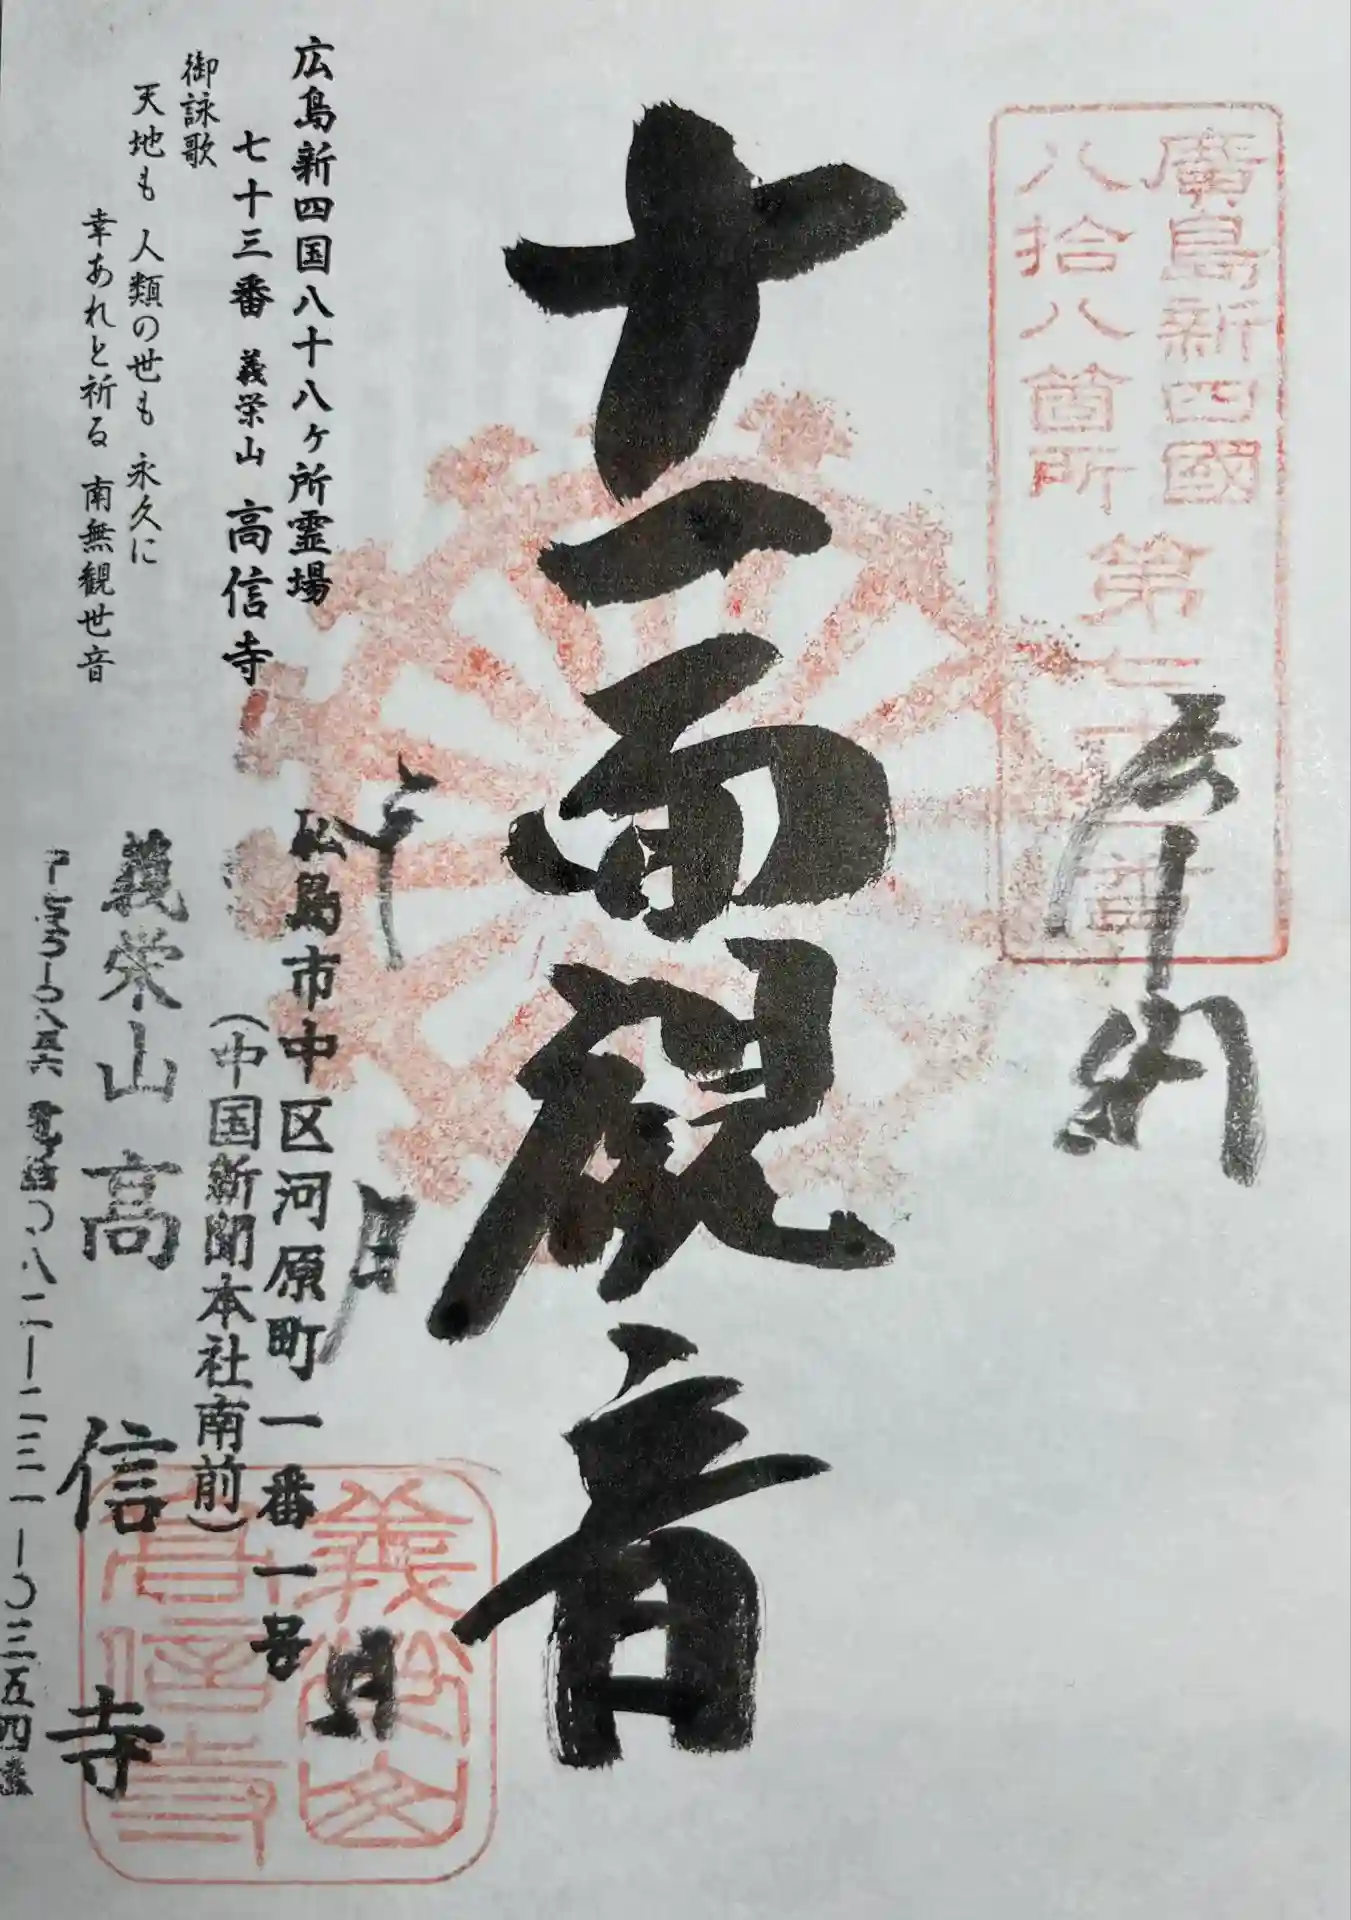 廣島新四國
八拾八箇所
第七十三番
奉納
十一面観音
広島新四国八十八ヶ所霊場
七十三番 義栄山 高信寺
御詠歌
天地も 人類の世も 永久に
幸あれと祈る 南無観世音
年 月 日
広島市中区河原町一番一号
(中国新聞本社南前)
義栄山 高信寺
〒七三〇-〇八五六 電話〇八二-二三一-〇三五四番
義榮山
高信寺